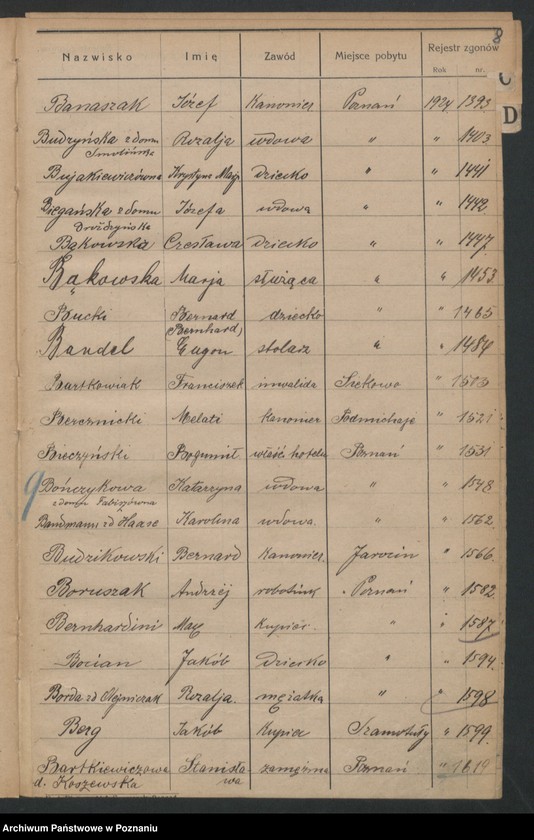 8
Nazwisko Imię Zawód Miejsce pobytu Rejestr zgonów
Rok nr.
C
D
Banaszak Józef Kanonier Poznań 1924 1393
Budzyńska z domu Rozalja wdowa " " 1403
Smolińska
Bujakiewiczówna Krystyna Maj. dziecko " " 1441
Biegańska z domu Józefa wdowa " " 1442
Drożdżyńska
Bąkowska Czesława dziecko " " 1447
Bąkowska Marja służąca " " 1453
Bucki Bernard dziecko " " 1465
Bandel (Bernhard) Eugen stolarz " " 1484
Bartkowiak Franciszek inwalida Siekowo " 1513
Bereznicki Melati kanonier Podmichaje " 1521
Bieczyński Bogumił właśc hotelu Poznań " 1531
9
Bończykowa Katarzyna wdowa " " 1548
z domu Fabiszówna
Bandmann zd Haase Karolina wdowa " " 1562
Budzikowski Bernard Kanonier. Jarocin " 1566
Boruszak Andrzej robotnik Poznań " 1582
Bernhardini Max Kupiec " " 1587
Bocian Jakób dziecko " " 1594
Borda zd Olejniczak Rozalja. mężatka " " 1598
Berg Jakób Kupiec Szamotuły " 1599
Bartkiewiczowa Stanisła zamężna Poznań " 1619
d. Koszewska wa
Archiwum Państwowe w Poznaniu